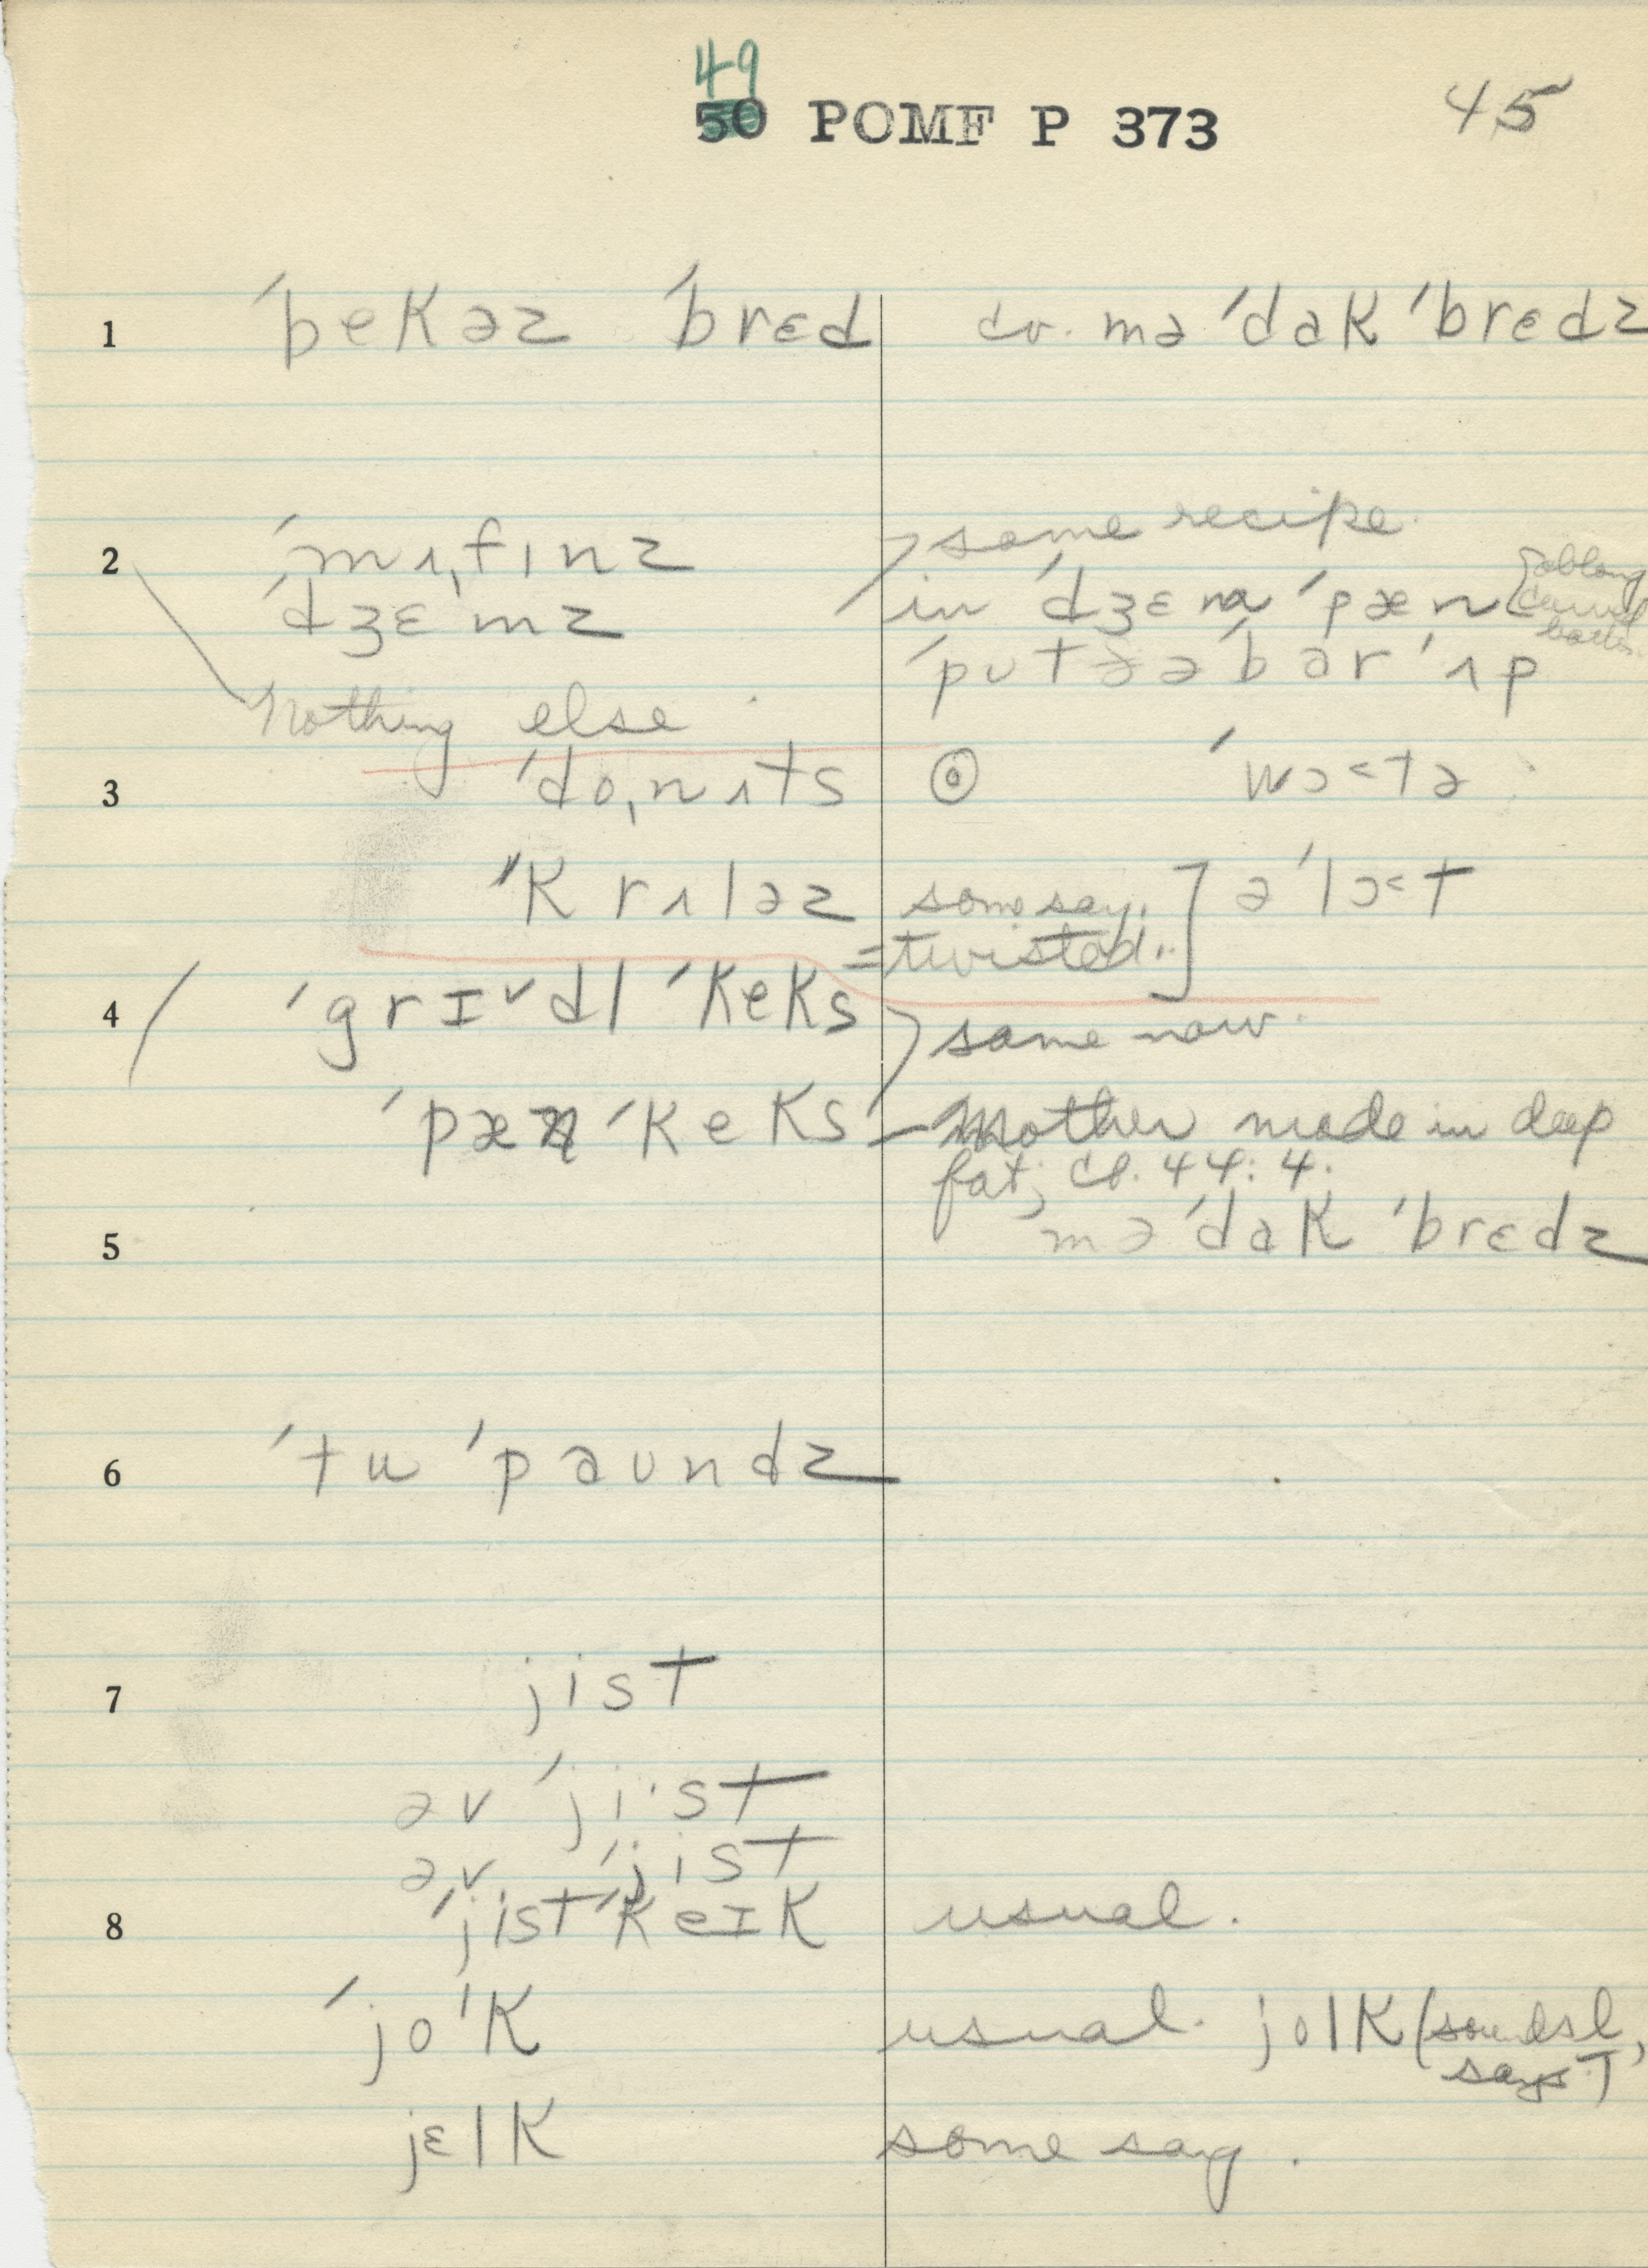 49
50 POMF P 373 45
1 ˈbekəz ˈbrɛd cv. mə ˈdak ˈbrɛdz
2 ˈmʌˌfɪnz same recipe.
ˈdʒɛmz in ˈdʒɛm ˈpæn oblong
ˈputəə ˈbar ˈʌp
Nothing else
3 ˈdoˌnʌts ˈwɔ˂tə
ˈkrʌləz some say. ə ˈlɔ˂t
=twisted..
4 ˈgrɪ˅dl ˈkeks same now.
ˈpæn ˈkeks – Mother made in deep
fat; cf. 44:4.
5 mə ˈdak ˈbrɛdz
6 ˈtu ˈpaundz
7 jist
əv ˈji·st
əv ˈjist
8 ˈjist ˈkeɪk usual.
ˈjoˈk usual. jolk (sounds l, says T)
jɛlk some say.